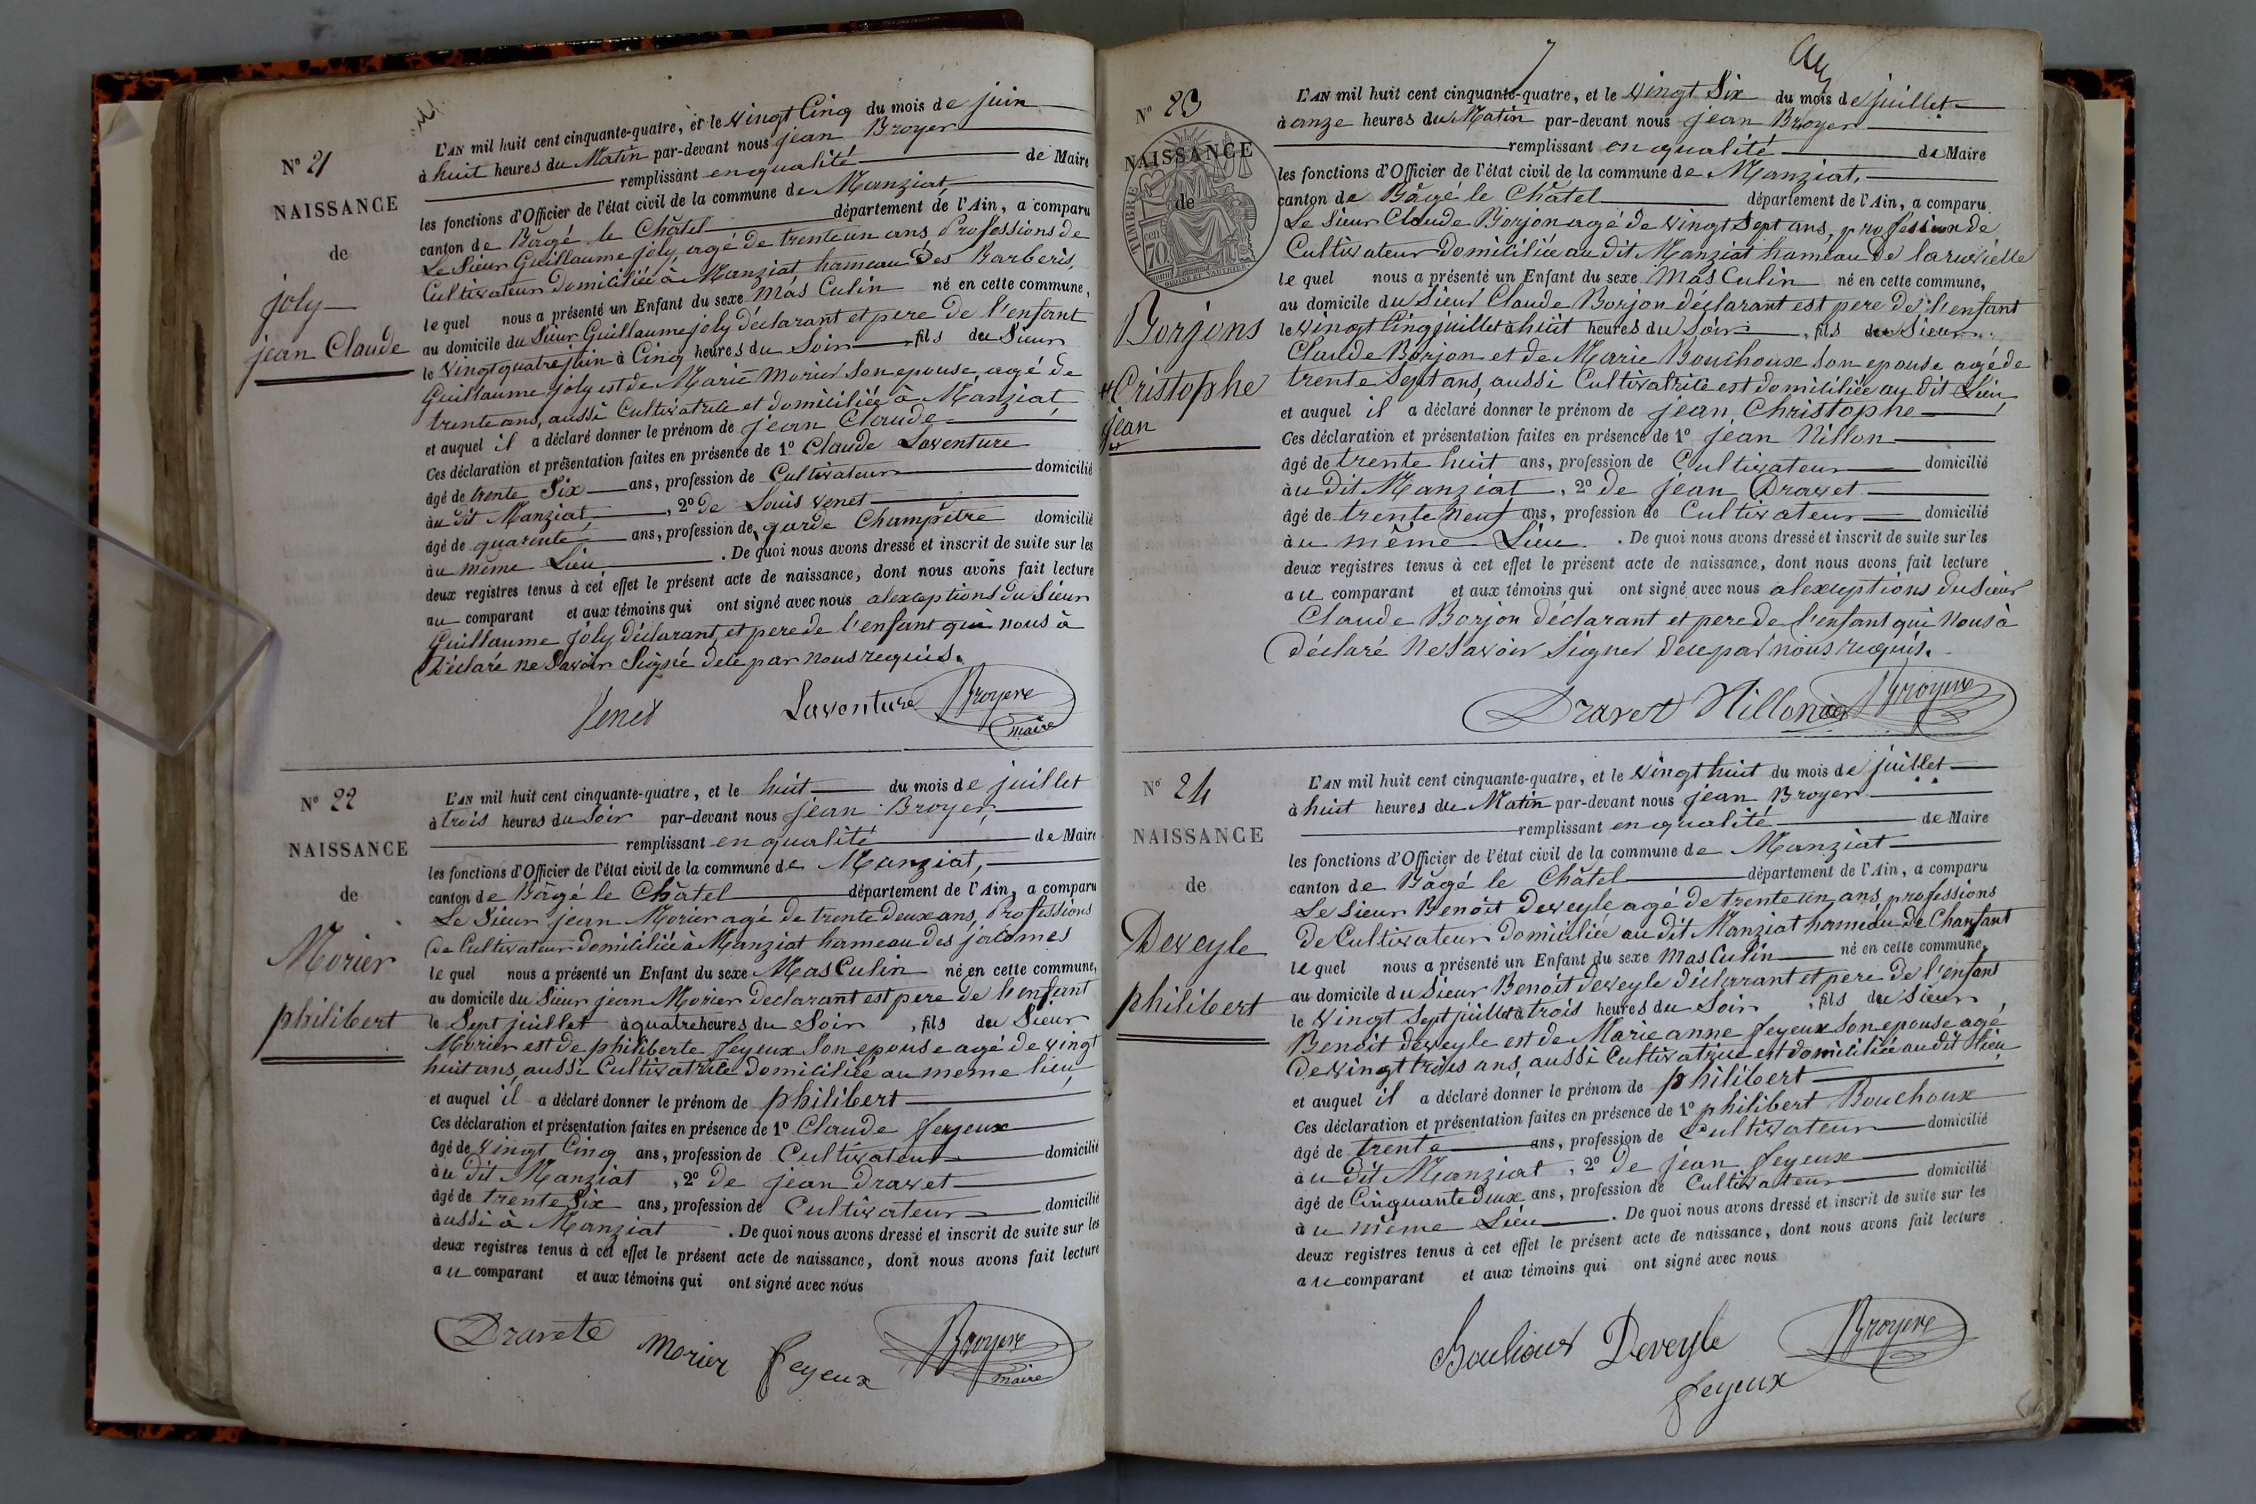 N° 21
NAISSANCE
de
joly
jean Claude
L'AN mil huit cent cinquante-quatre, et le vingt Cinq du mois de juin
à huit heures du Matin par-devant nous jean Broyer
remplissant en qualité de Maire
les fonctions d'Officier de l'état civil de la commune de Manziat,
canton de Bâgé le Châtel département de l'Ain, a comparu
Le Sieur Guillaume joly, agé de trente un ans Professions de
Cultivateur Domiciliée à Manziat hameau Des Barberis,
le quel nous a présenté un Enfant du sexe Mas Culin né en cette commune,
au domicile du Sieur Guillaume joly déclarant et pere de l'enfant
le Vingt quatre juin à Cinq heures du Soir fils du Sieur
Guillaume joly est de Marie Morier son epouse, agé de
trente ans, aussi Cultivatrice et domiciliée à Manziat
et auquel il a déclaré donner le prénom de jean Claude
Ces déclaration et présentation faites en présence de 1° Claude Laventure
âgé de trente Six ans, profession de Cultivateur domicilié
au dit Manziat, 2° de Louis Venet
âgé de quarente ans, profession de garde Champêtre domicilié
au même Lieu. De quoi nous avons dressé et inscrit de suite sur les
deux registres tenus à cet effet le présent acte de naissance, dont nous avons fait lecture
au comparant et aux témoins qui ont signé avec nous alexceptions du Sieur
Guillaume joly déclarant, et pere de l'enfant qui nous à
Déclaré ne Savoir Signé dece par nous requis.
Venet Laventure Broyere
maire
N° 22
NAISSANCE
de
Morier
philibert
L'AN mil huit cent cinquante-quatre, et le huit du mois de juillet
à trois heures du Soir par-devant nous jean Broyer,
remplissant en qualité de Maire
les fonctions d'Officier de l'état civil de la commune de Manziat,
canton de Bâgé le Châtel département de l'Ain, a comparu
Le Sieur jean Morier agé de trente Deux ans, Professions
de Cultivateur domiciliée à Manziat hameau des jacomes
le quel nous a présenté un Enfant du sexe Mas Culin né en cette commune,
au domicile du Sieur jean Morier declarant est pere de l'enfant
le Sept juillet à quatre heures du Soir, fils du Sieur
Morier est de philiberte feyeux Son epouse agé de vingt
huit ans, aussi Cultivatrice domiciliée au meme lieu
et auquel il a déclaré donner le prénom de philibert
Ces déclaration et présentation faites en présence de 1° Claude feyeux
âgé de vingt Cinq ans, profession de Cultivateur domicilié
au dit Manziat, 2° de jean Dravet
âgé de trente Six ans, profession de Cultivateur domicilié
aussi à Manziat. De quoi nous avons dressé et inscrit de suite sur les
deux registres tenus à cet effet le présent acte de naissance, dont nous avons fait lecture
au comparant et aux témoins qui ont signé avec nous
Dravete morier feyeux Broyere
maire
7
N° 23
NAISSANCE
de
TIMBRE
70
Borjons
Cristophe
jean
L'AN mil huit cent cinquante-quatre, et le vingt Six du mois de juillet
à onze heures du Matin par-devant nous jean Broyer
remplissant en qualité de Maire
les fonctions d'Officier de l'état civil de la commune de Manziat,
canton de Bâgé le Châtel département de l'Ain, a comparu
Le Sieur Claude Borjon agé de vingt Sept ans, profession de
Cultivateur domiciliée au dit Manziat hameau de laruvielle
le quel nous a présenté un Enfant du sexe Mas Culin né en cette commune,
au domicile du Sieur Claude Borjon déclarant est pere de l'enfant
le vingt Cinq juillet à huit heures du Soir, fils du Sieur
Claude Borjon et de Marie Bouchoux son epouse agé de
trente Sept ans, aussi Cultivatrice est domiciliée au dit Lieu
et auquel il a déclaré donner le prénom de jean Christophe
Ces déclaration et présentation faites en présence de 1° jean Nillon
âgé de trente huit ans, profession de Cultivateur domicilié
au dit Manziat, 2° de jean Dravet
âgé de trente Neuf ans, profession de Cultivateur domicilié
au même Lieu. De quoi nous avons dressé et inscrit de suite sur les
deux registres tenus à cet effet le présent acte de naissance, dont nous avons fait lecture
au comparant et aux témoins qui ont signé avec nous alexceptions du Sieur
Claude Borjon déclarant et pere de l'enfant qui Nous à
déclaré Ne Savoir Signer dece par nous requis.
Dravet Nillon Broyere
N° 24
NAISSANCE
de
Deveyle
philibert
L'AN mil huit cent cinquante-quatre, et le vingt huit du mois de juillet
à huit heures du Matin par-devant nous jean Broyer
remplissant en qualité de Maire
les fonctions d'Officier de l'état civil de la commune de Manziat
canton de Bâgé le Châtel département de l'Ain, a comparu
Le Sieur Benoit Deveyle agé de trente un ans, professions
de Cultivateur domiciliée au dit Manziat hameau de Chanfant
le quel nous a présenté un Enfant du sexe mas Culin né en cette commune,
au domicile du Sieur Benoit deveyle déclarant et pere de l'enfant
le vingt Sept juillet à trois heures du Soir, fils du Sieur
Benoit deveyle est de Marie anne feyeux Son epouse agé
de vingt trois ans, aussi Cultivatrice est domiciliée au dit lieu
et auquel il a déclaré donner le prénom de philibert
Ces déclaration et présentation faites en présence de 1° philibert Bouchoux
âgé de trente ans, profession de Cultivateur domicilié
au dit Manziat, 2° de jean feyeux
âgé de Cinquante Deux ans, profession de Cultivateur domicilié
au même Lieu. De quoi nous avons dressé et inscrit de suite sur les
deux registres tenus à cet effet le présent acte de naissance, dont nous avons fait lecture
au comparant et aux témoins qui ont signé avec nous
Bouhoux Deveyle Broyere
feyeux